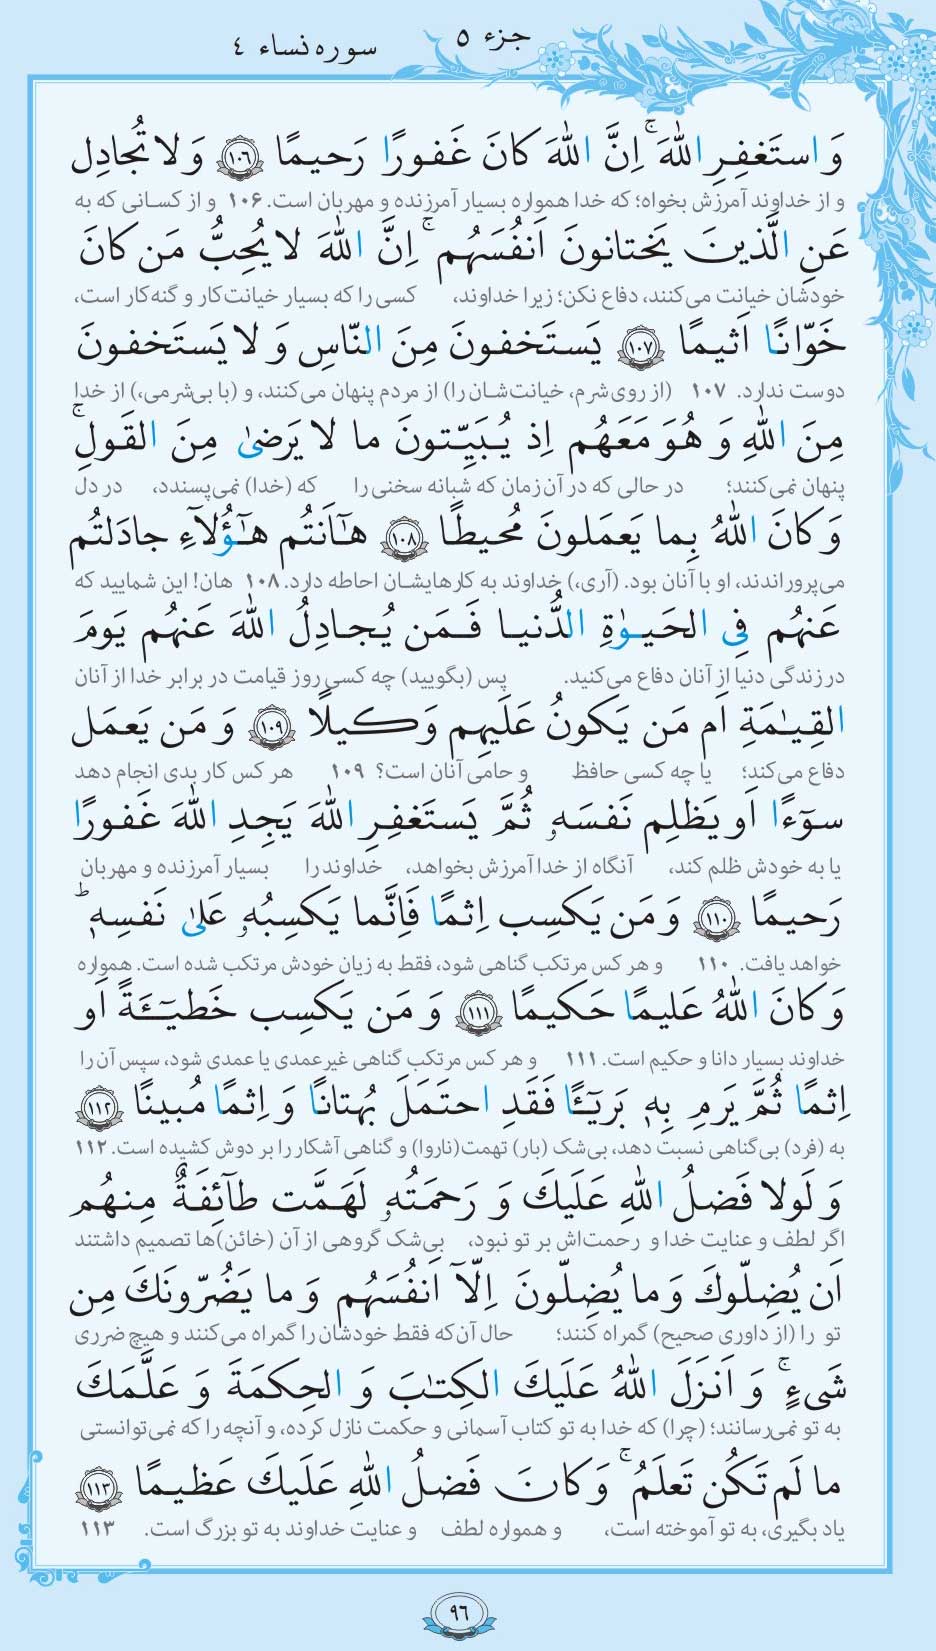 جزء ۵
سوره نساء ۴
وَ استَغفِرِ اللّٰهَ ۚ اِنَّ اللّٰهَ كانَ غَفورًا رَحيمًا ﴿۱۰۶﴾ وَ لا تُجادِل
و از خداوند آمرزش بخواه؛ که خدا همواره بسیار آمرزنده و مهربان است. ۱۰۶ و از کسانی که به
عَنِ الَّذينَ يَختانونَ اَنفُسَهُم ۚ اِنَّ اللّٰهَ لا يُحِبُّ مَن كانَ
خودشان خیانت می‌کنند، دفاع نکن؛ زیرا خداوند، کسی را که بسیار خیانت‌کار و گنه‌کار است،
خَوّانًا اَثيمًا ﴿۱۰۷﴾ يَستَخفونَ مِنَ النّاسِ وَ لا يَستَخفونَ
دوست ندارد. ۱۰۷ (از روی شرم، خیانت‌شان را) از مردم پنهان می‌کنند، و (با بی‌شرمی،) از خدا
مِنَ اللّٰهِ وَ هُوَ مَعَهُم اِذ يُبَيِّتونَ ما لا يَرضىٰ مِنَ القَولِ ۚ
پنهان نمی‌کنند؛ در حالی که در آن زمان که شبانه سخنی را که (خدا) نمی‌پسندد، در دل
وَ كانَ اللّٰهُ بِما يَعمَلونَ مُحيطًا ﴿۱۰۸﴾ هٰٓاَنتُم هٰٓؤُلآءِ جادَلتُم
می‌پروراندند، او با آنان بود. (آری،) خداوند به کارهایشان احاطه دارد. ۱۰۸ هان! این شمایید که
عَنهُم فِى الحَيوٰةِ الدُّنيا فَمَن يُجادِلُ اللّٰهَ عَنهُم يَومَ
در زندگی دنیا از آنان دفاع می‌کنید. پس (بگویید) چه کسی روز قیامت در برابر خدا از آنان
القِيٰمَةِ اَم مَن يَكونُ عَلَيهِم وَكيلًا ﴿۱۰۹﴾ وَ مَن يَعمَل
دفاع می‌کند؛ یا چه کسی حافظ و حامی آنان است؟ ۱۰۹ هر کس کار بدی انجام دهد
سوٓءًا اَو يَظلِم نَفسَهٗ ثُمَّ يَستَغفِرِ اللّٰهَ يَجِدِ اللّٰهَ غَفورًا
یا به خودش ظلم کند، آنگاه از خدا آمرزش بخواهد، خداوند را بسیار آمرزنده و مهربان
رَحيمًا ﴿۱۱۰﴾ وَ مَن يَكسِب اِثمًا فَاِنَّما يَكسِبُهٗ عَلىٰ نَفسِهٖ ۚط
خواهد یافت. ۱۱۰ و هر کس مرتکب گناهی شود، فقط به زیان خودش مرتکب شده است. همواره
وَ كانَ اللّٰهُ عَليمًا حَكيمًا ﴿۱۱۱﴾ وَ مَن يَكسِب خَطيٓـَٔةً اَو
خداوند بسیار دانا و حکیم است. ۱۱۱ و هر کس مرتکب گناهی غیرعمدی یا عمدی شود، سپس آن را
اِثمًا ثُمَّ يَرمِ بِهٖ بَريٓـًٔا فَقَدِ احتَمَلَ بُهتانًا وَ اِثمًا مُبينًا ﴿۱۱۲﴾
به (فرد) بی‌گناهی نسبت دهد، بی‌شک (بار) تهمت (ناروا) و گناهی آشکار را بر دوش کشیده است. ۱۱۲
وَ لَولا فَضلُ اللّٰهِ عَلَيكَ وَ رَحمَتُهٗ لَهَمَّت طآئِفَةٌ مِنهُم
اگر لطف و عنایت خدا و رحمت‌اش بر تو نبود، بی‌شک گروهی از آن (خائن)ها تصمیم داشتند
اَن يُضِلّوكَ وَ ما يُضِلّونَ اِلّآ اَنفُسَهُم وَ ما يَضُرّونَكَ مِن
تو را (از داوری صحیح) گمراه کنند؛ حال آن‌که فقط خودشان را گمراه می‌کنند و هیچ ضرری
شَىءٍ ۚ وَ اَنزَلَ اللّٰهُ عَلَيكَ الكِتٰبَ وَ الحِكمَةَ وَ عَلَّمَكَ
به تو نمی‌رسانند؛ (چرا) که خدا به تو کتاب آسمانی و حکمت نازل کرده، و آنچه را که نمی‌توانستی
ما لَم تَكُن تَعلَمُ ۚ وَ كانَ فَضلُ اللّٰهِ عَلَيكَ عَظيمًا ﴿۱۱۳﴾
یاد بگیری، به تو آموخته است، و همواره لطف و عنایت خداوند به تو بزرگ است. ۱۱۳
۹۶